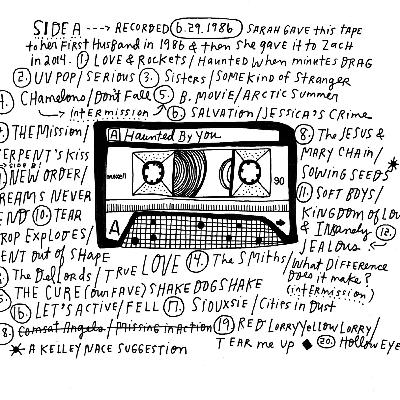 SIDE A ---> RECORDED 6.29.1986 SARAH GAVE THIS TAPE
to her FIRST HUSBAND in 1986 & then SHE gave iT to ZACH
in 2014. 1. LOVE & ROCKETS / HAUNTED WHEN minutes DRAG
2. UV POP / SERIOUS 3. SISTERS / SOME KIND OF STRANGER
4. CHAMELONS / DON'T FALL 5. B. MOVIE / ARCTIC SUMMER
intermission 6. SALVATION / JESSICA'S CRIME
THE MISSION /
ERPENT'S KISS
SIDE B!
NEW ORDER /
REAMS NEVER
END 10. TEAR
ROP EXPLODES /
ENT OUT of SHAPE
A HAUNTED BY YOU
maxell
90
A
8. The JESUS &
MARY CHAIN /
SOWING SEEDS *
11. SOFT BOYS /
KINGDOM OF LOV
& INSANELY 12.
JEALOUS
The Dell Lords / TRUE LOVE 14. The SMITHS / WHAT DIFFERENCE
DOES it MAKE?
(intermission)
THE CURE (OUR FAVE) SHAKE DOG SHAKE
16. LET'S ACTIVE / FELL 17. SIOUXSIE / CITIES in DUST
8. Comsat Angels / Missing in Action 19. RED LORRY YELLOW LORRY /
* A KELLEY NACE SUGGESTION TEAR me up ◆ 20. HOLLOW EYE